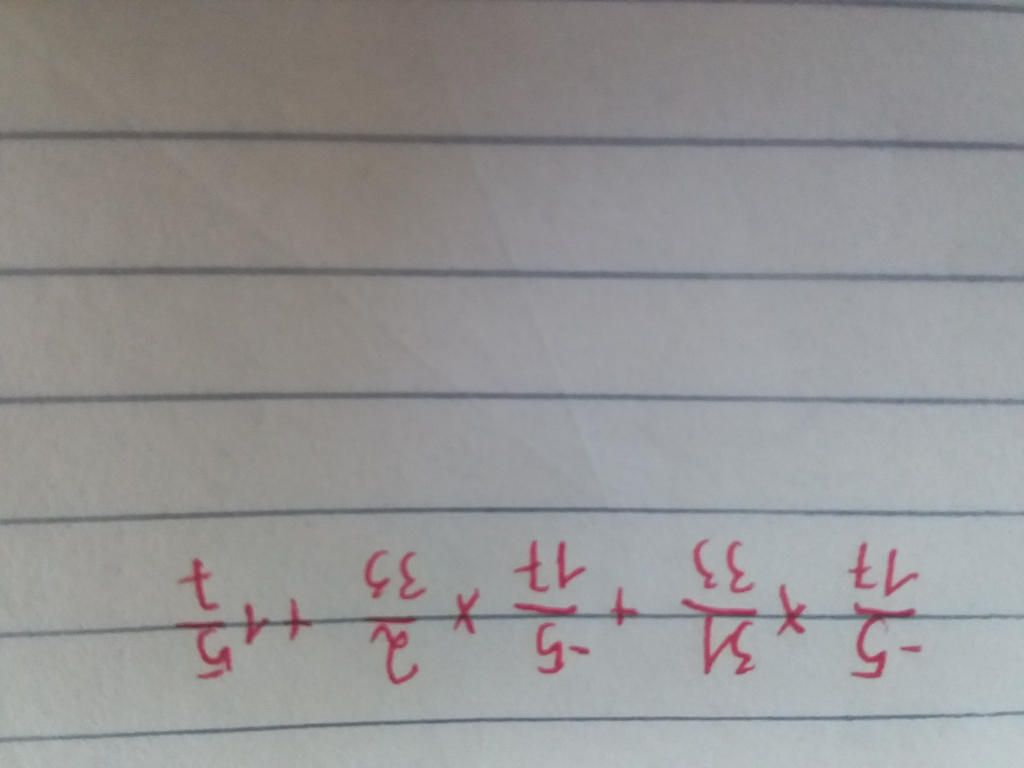 -5/17 x 31/33 + -5/17 x 2/33 + 1 5/7